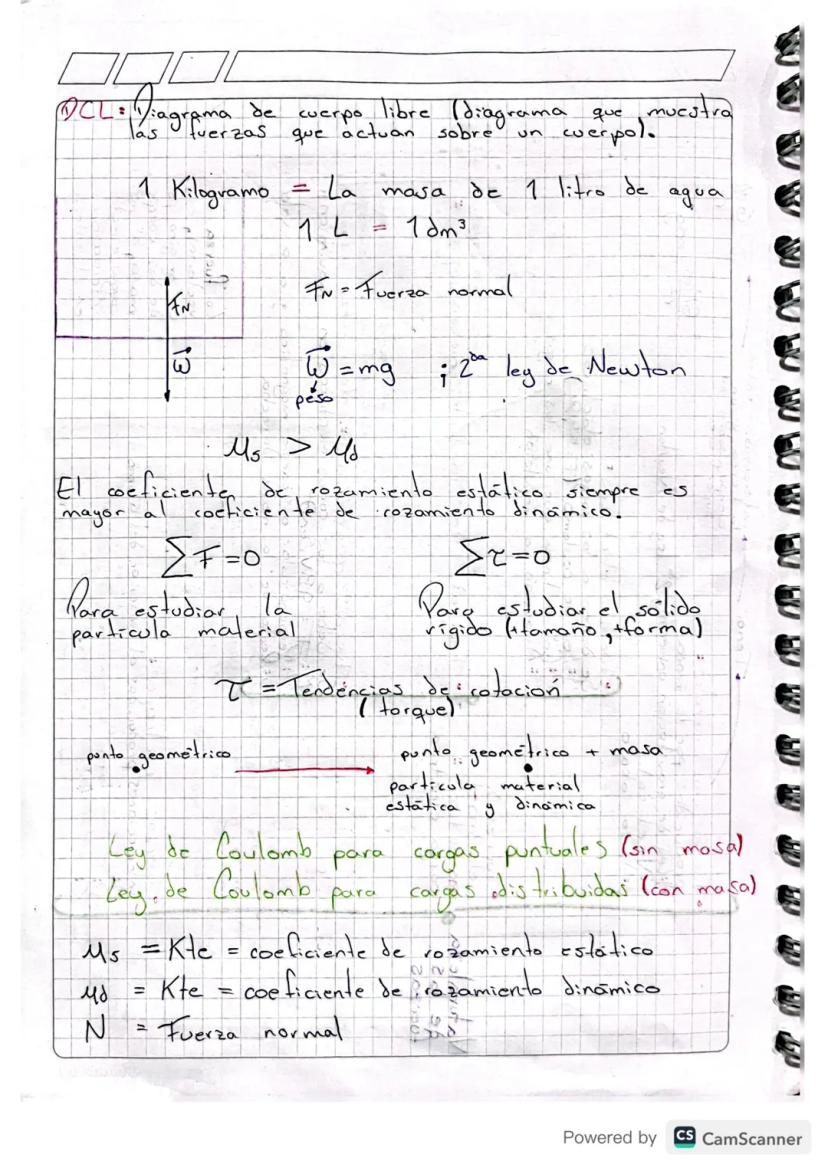 DCL: Diagrama de cuerpo libre (diagrama que muestra
las fuerzas que actuan sobre un cuerpo).
1 Kilogramo = La masa de 1 litro de agua
1 L = 1 dm³
FN
FN = Fuerza normal
W
W = mg ; 2da ley de Newton
peso
Ms > Md
El coeficiente de rozamiento estático siempre es
mayor al coeficiente de rozamiento dinámico.
ΣF=0 Στ=0
Para estudiar la
partícula material
Para estudiar el sólido
rígido (+tamaño, +forma)
τ = Tendencias de rotación
(torque)
punto geométrico
punto geométrico + masa
partícula material
estática y dinámica
Ley de Coulomb para cargas puntuales (sin masa)
Ley de Coulomb para cargas distribuidas (con masa)
Ms = Kte = coeficiente de rozamiento estático
Md = Kte = coeficiente de rozamiento dinámico
N = Fuerza normal
Powered by CS CamScanner